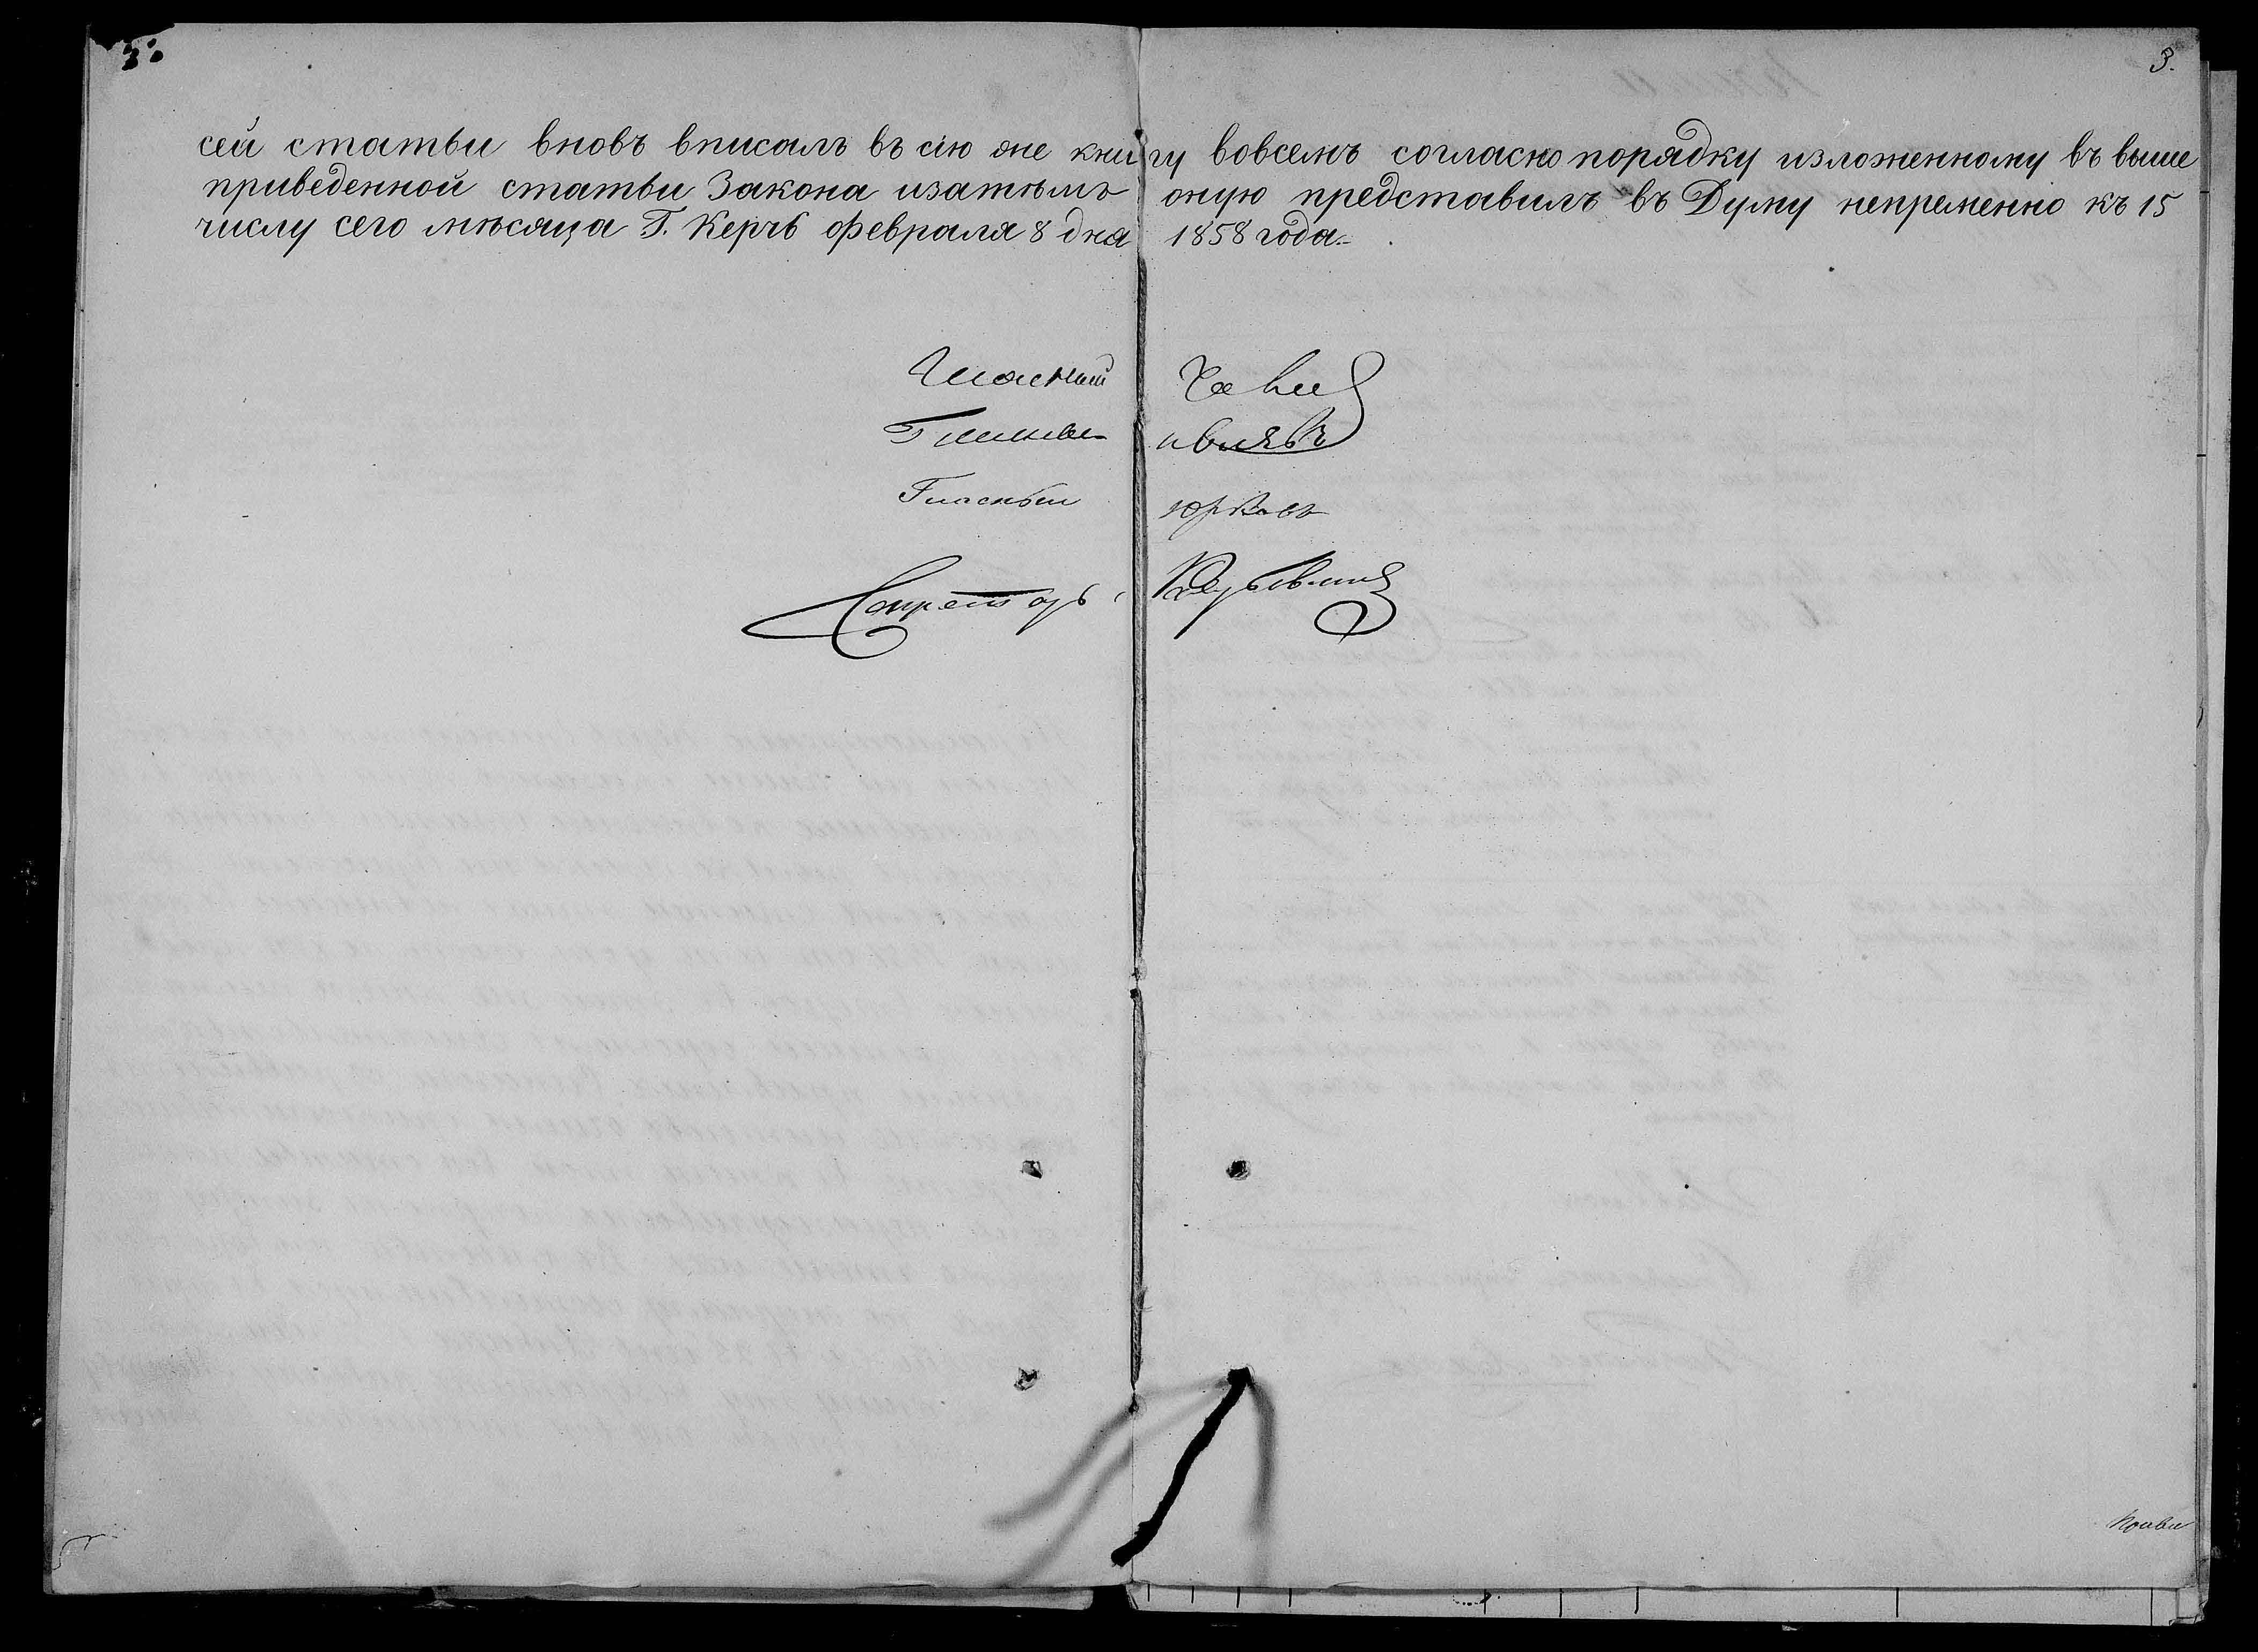 3.
сей статьи вновь вписалъ въ сію же книгу вовсемъ согласно порядку изложенному въ выше
приведенной статьи Закона изатѣмъ оную представилъ въ Думу непременно къ 15
числу сего мѣсяца Г. Керчь февраля 8 дня 1858 года.
Гласный
Гласный
Гласный Юрковъ
Секретарь